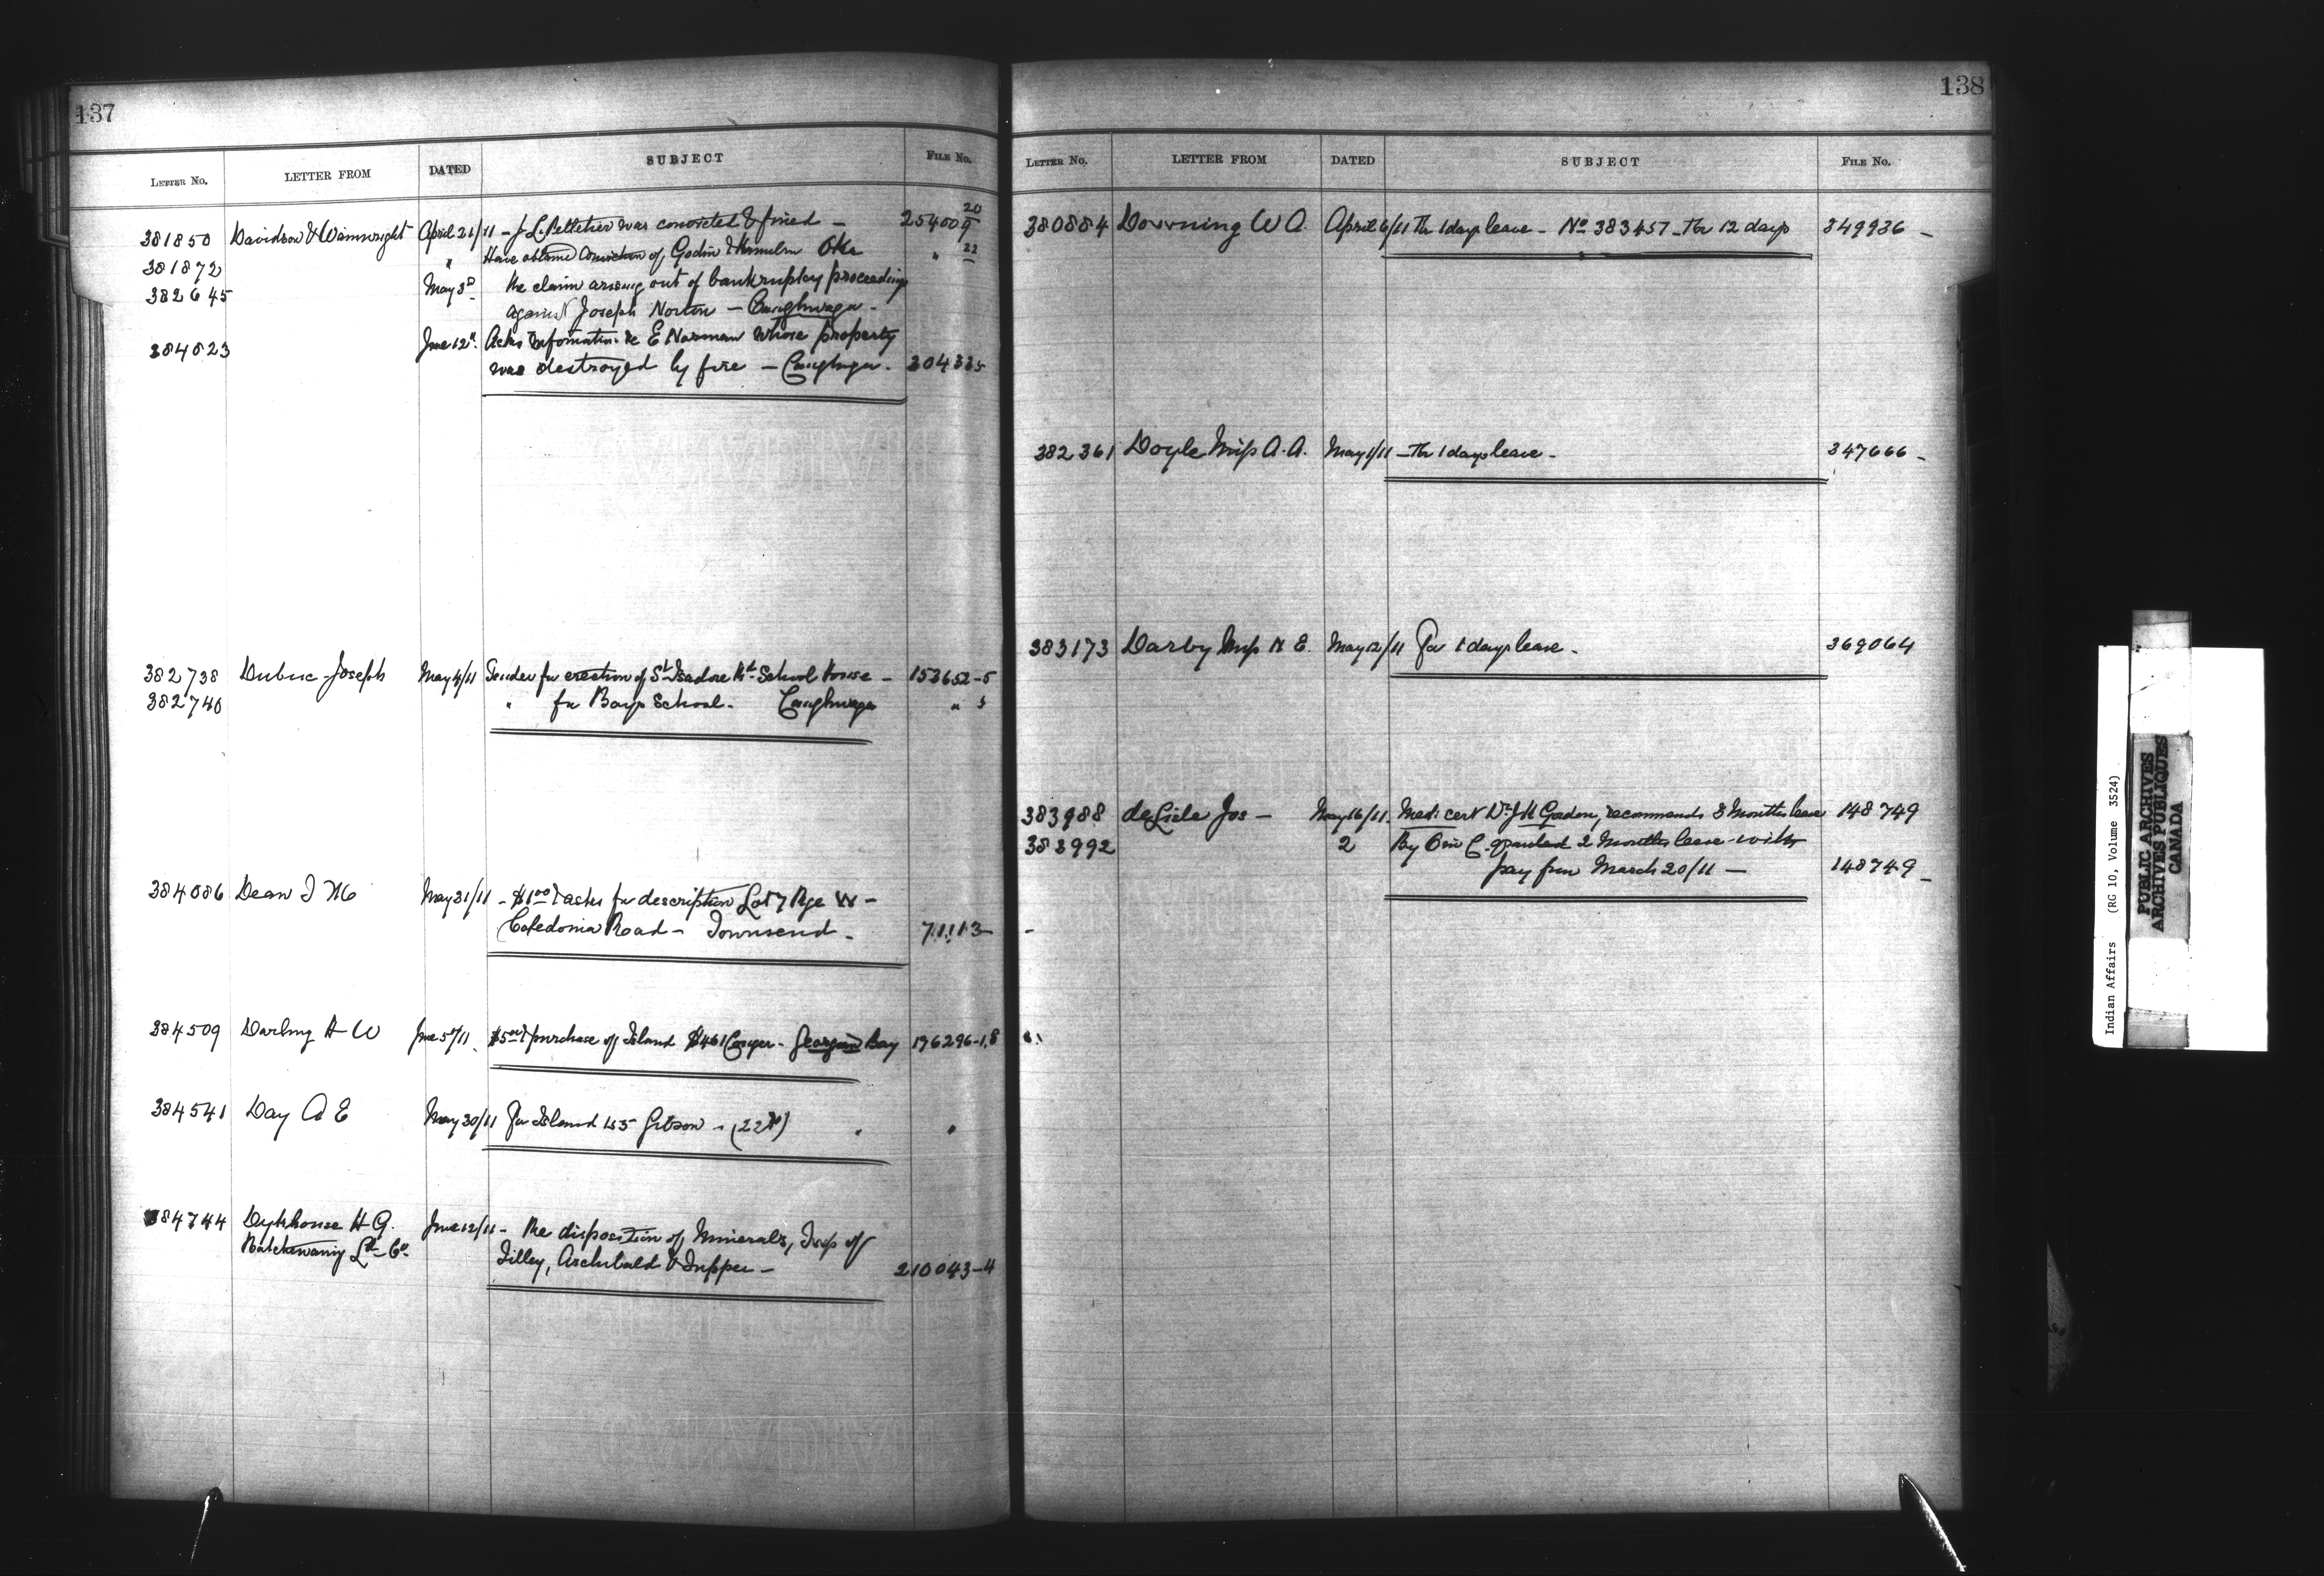 137
LETTER No. LETTER FROM DATED SUBJECT FILE No.
381850 Davidson & Wainwright April 21/11 - J L Pelletier was convicted & fined - 254009 20/5
381872 " Have obtained conviction of Godin & Oka " 22
382645 May 3rd Re claim arising out of bankruptcy proceedings
against Joseph Norton - Caughnwaga -
384823 June 12th Acks information re E Norman whose property
was destroyed by fire - Caughnga - 304335
382738 Dubuc Joseph May 4/11 Tender for erection of St Isadore Rd School House - 153652-5
382740 " for Boys School - Caughnwaga " 5
384086 Dean J M May 31/11 - $1.00 & asks for description Lot 7 Rge W -
Caledonia Road - Townsend - 71113
384509 Darling A W June 5th/11 $5.00 & purchase of Island B461 Cowper - Georgian Bay 196296-1.8
384541 Day A E May 30/11 For Island 435 Gibson - (22 ) " "
384744 Dykhouse H G. June 12/11 - Re disposition of Minerals, Twp of
Batchewaning Ld Co. Tilley, Archibald & Tupper - 210043-4
138
LETTER No. LETTER FROM DATED SUBJECT FILE No.
380884 Downing W A. April 6/11 Thr 1 days leave - No 383457 - Thr 12 days 349936 -
382361 Doyle Miss A. A. May 1/11 - Thr 1 days leave - 347666 -
383173 Darby Miss H E. May 12/11 For 1 days leave - 369064
383988 deLisle Jos - May 16/11. Medi cert Dr J H Gordon, recommends 3 Months leave 148749
383992 2 By O in C. granted 2 Months leave with
pay from March 20/11 - 148749 -
Indian Affairs (RG 10, Volume 3524)
PUBLIC ARCHIVES
ARCHIVES PUBLIQUES
CANADA